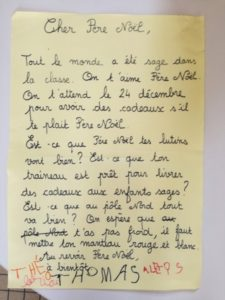 Cher Père Noël,
Tout le monde a été sage dans
la classe. On t'aime Père Noël.
On t'attend le 24 décembre
pour avoir des cadeaux s'il
te plaît Père Noël.
Est-ce que Père Noël les lutins
vont bien? Est-ce que ton
traineau est prêt pour livrer
des cadeaux aux enfants sages?
Est-ce que au pôle Nord tout
va bien? On espère que au
pôle Nord t'as pas froid, il faut
mettre ton manteau rouge et blanc.
Au revoir Père Noël.
à bientôt
THOMAS